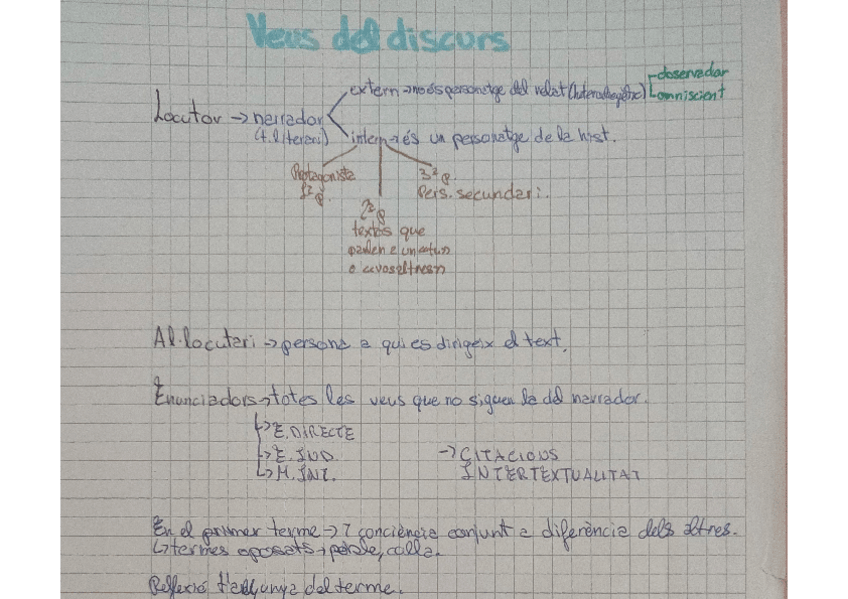 Veus del discurs
extern → no és personatge del relat (heterodiegètic)
observador
omniscient
Locutor → narrador
(t. literari)
intern → és un personatge de la hist.
Protagonista
1ª p.
3ª p.
Pers. secundari.
2ª p
textos que
parlen a un «tu»
o a «vosaltres»
Al·locutari → persona a qui es dirigeix el text.
Enunciadors → totes les veus que no siguen la del narrador.
↳ E. DIRECTE
↳ E. IND.
↳ M. INT.
→ CITACIONS
INTERTEXTUALITAT
En el primer terme → conciència conjunt a diferència dels altres.
↳ termes oposats → parla, calla.
Reflexió del terme.